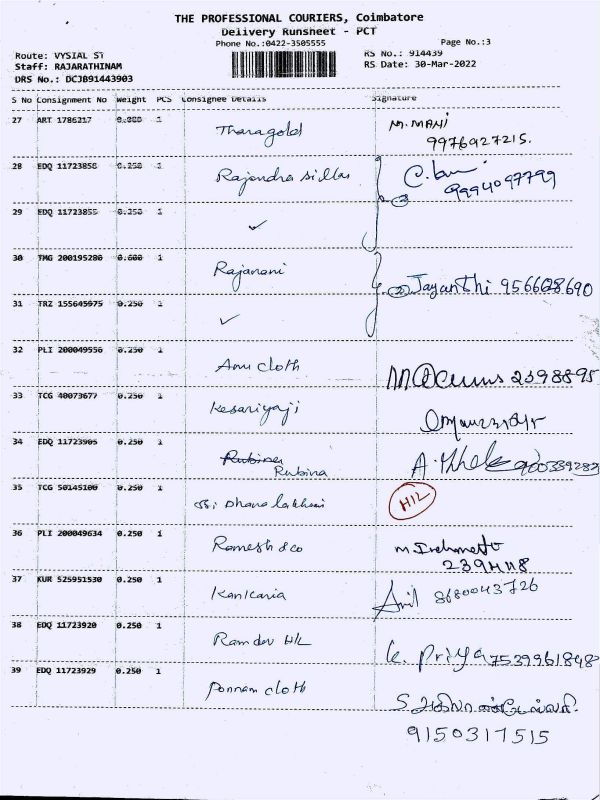 THE PROFESSIONAL COURIERS, Coimbatore
Delivery Runsheet - PCT
Phone No.:0422-3505555
Page No.:3
Route: VYSIAL ST
RS No.: 914439
Staff: RAJARATHINAM
RS Date: 30-Mar-2022
DRS No.: DCJB91443903
S No Consignment No Weight PCS Consignee Details Signature
27 ART 1786217 0.000 1 Tharagold M. MANI
9976927215.
28 EDQ 11723858 0.250 1 Rajendra sillas 9994097799
29 EDQ 11723855 0.350 1 ✓
30 TMG 200195280 0.600 1 Rajanani Jayanthi 956628690
31 TRZ 155645975 0.250 1 ✓
32 PLI 200049556 0.250 1 Anu cloth 2398895
33 TCG 40073677 0.250 1 Kesariyaji
34 EDQ 11723905 0.250 1 Rubina
Rubina
35 TCG 50145100 0.250 1 Dhana lakhmi H/L
36 PLI 200049634 0.250 1 Ramesh & co
37 KUR 525951530 0.250 1 Kankaria Anil 8680043726
38 EDQ 11723920 0.250 1 Ramdev H/L K. Priya 7539961848
39 EDQ 11723929 0.250 1 Ponnam cloth
9150317515